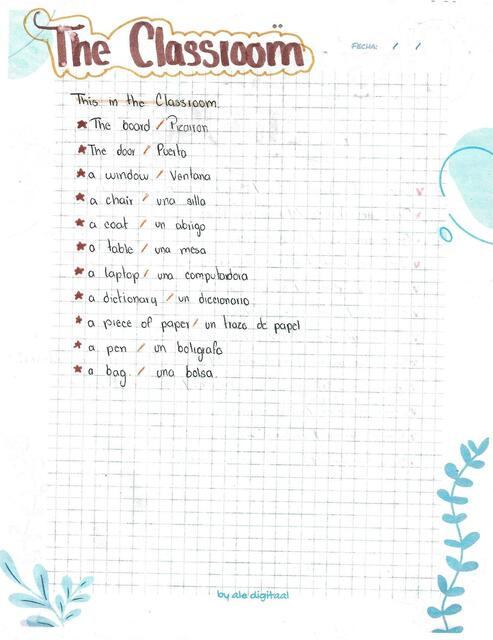 The Classroom
FECHA: / /
This in the Classroom.
The board / Pizarron
The door / Puerta
a window / Ventana
a chair / una silla
a coat / un abrigo
a table / una mesa
a laptop / una computadora
a dictionary / un diccionario.
a piece of paper / un trozo de papel
a pen / un boligrafo
a bag. / una bolsa.
by ale digitaal